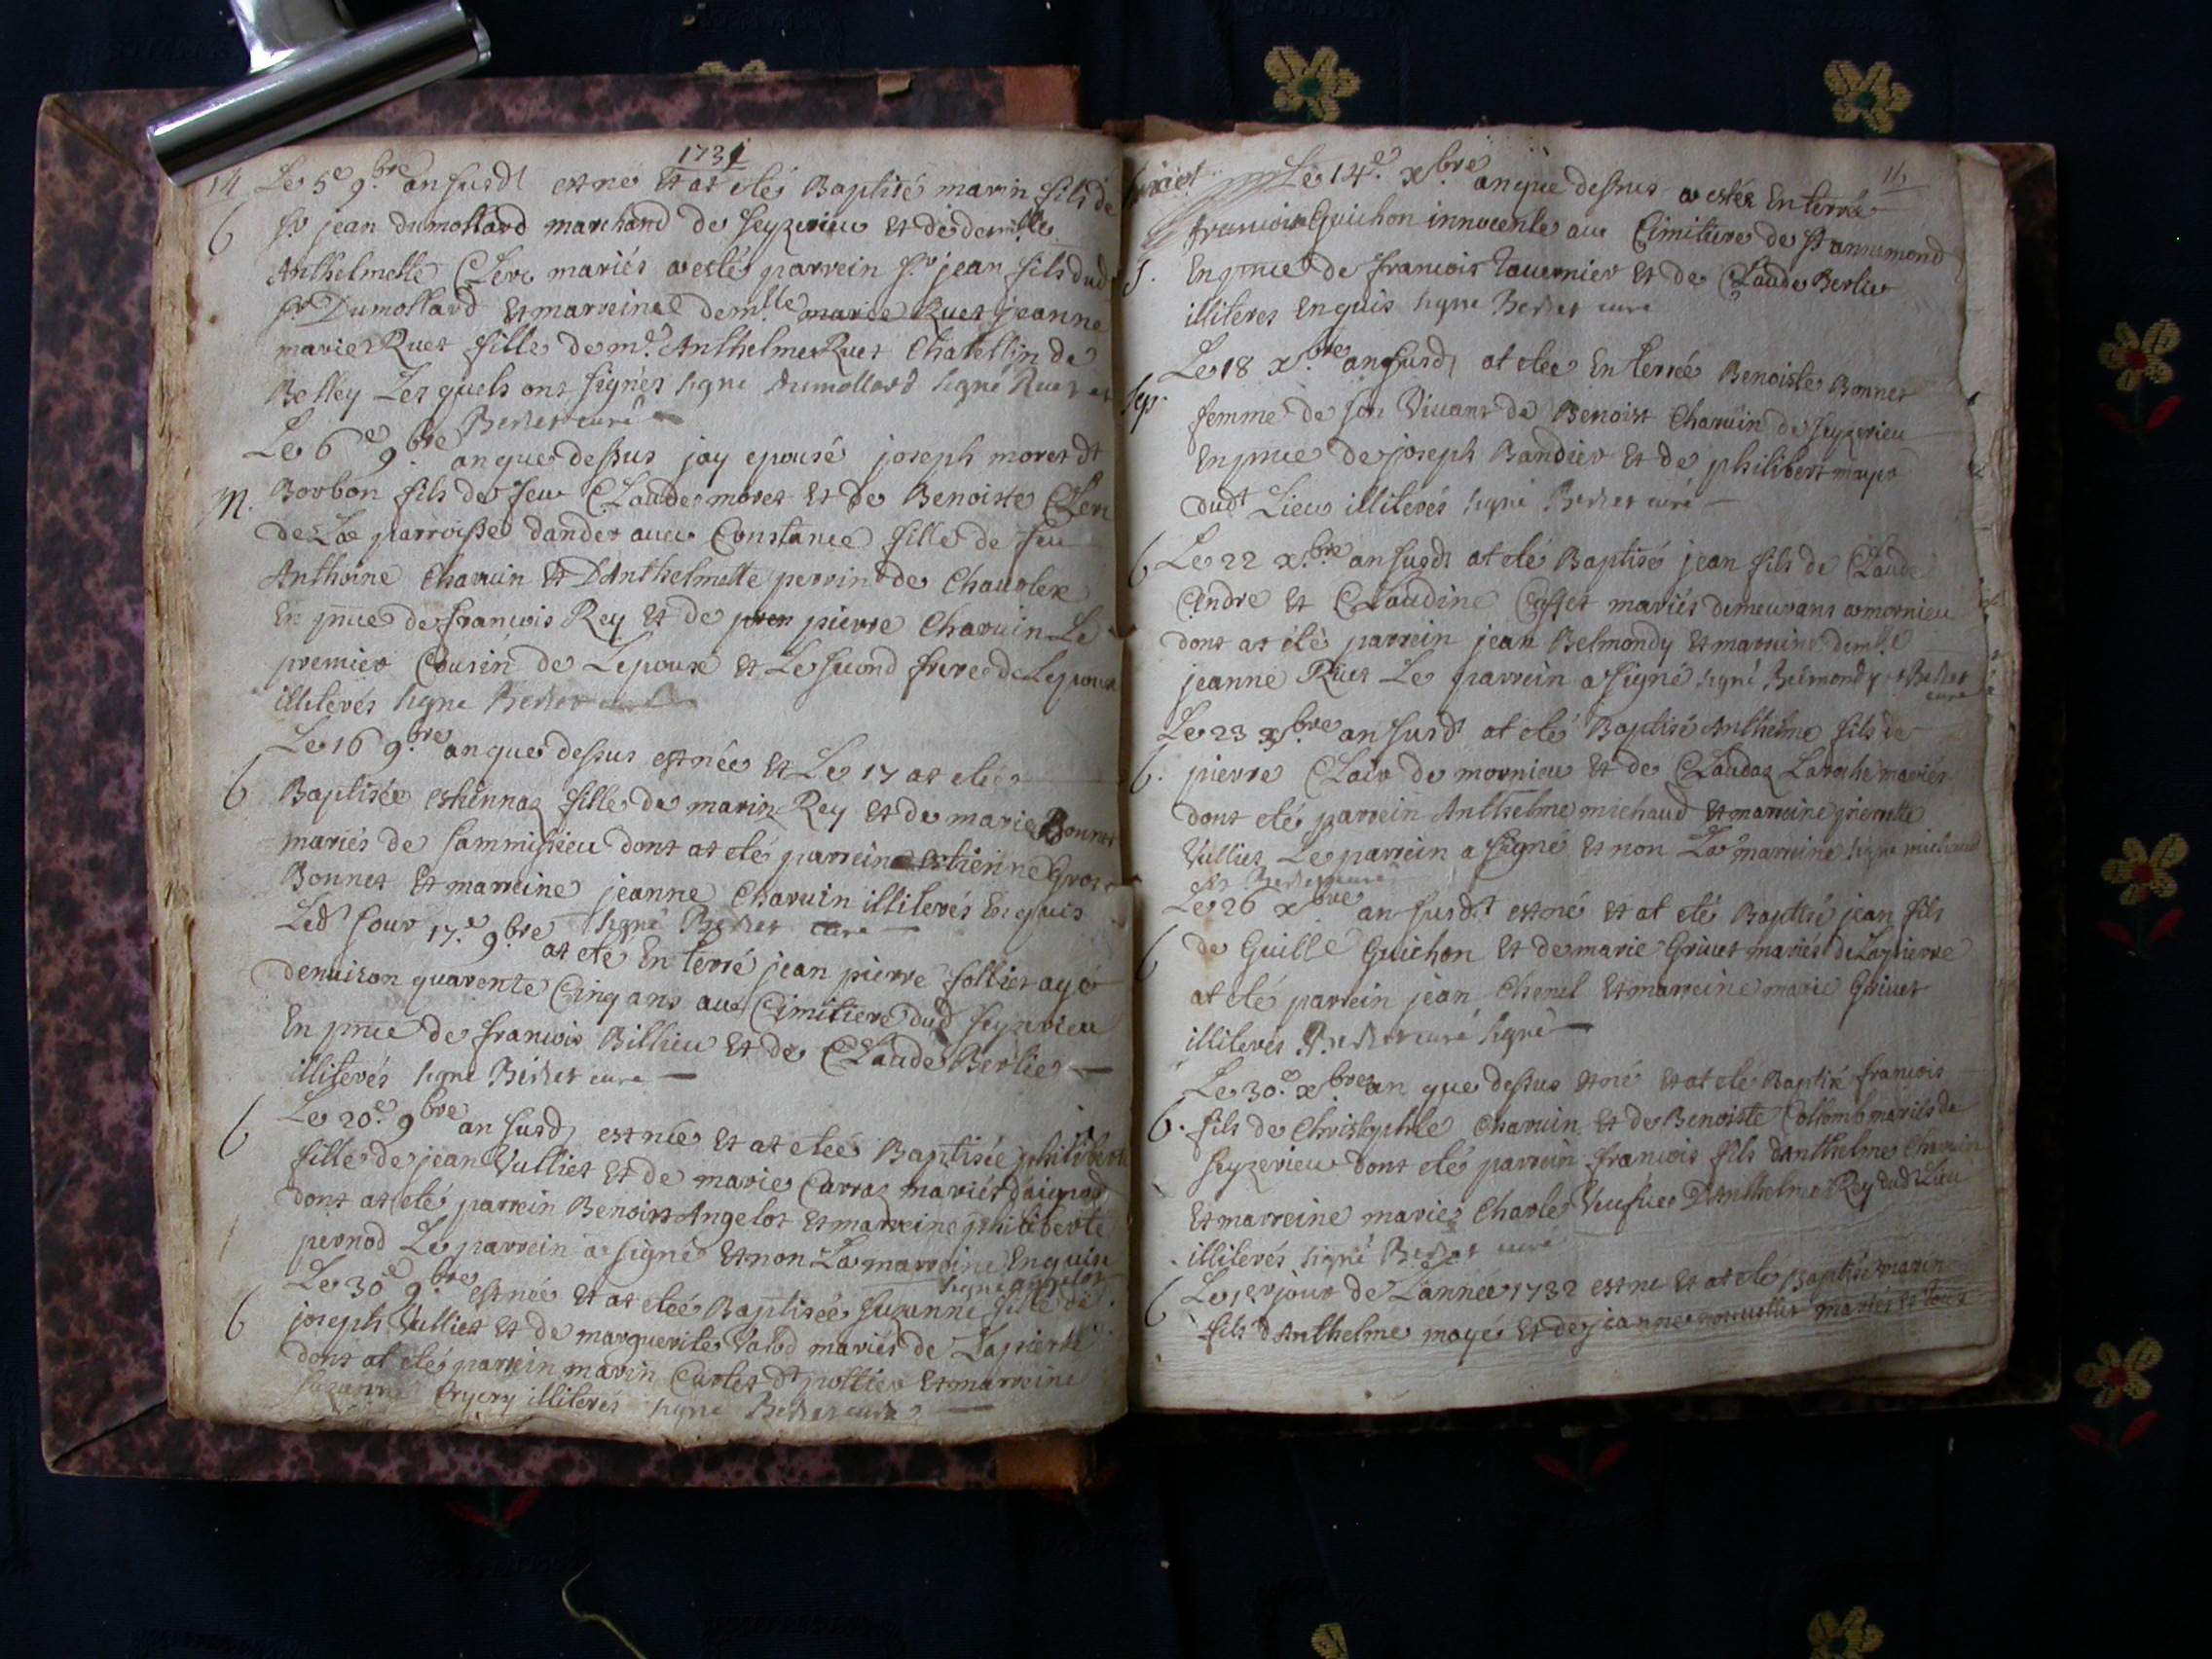 1731
14 Le 5e 9.bre an susdt est né Et at eté Baptisé marin fils de
6 Sr jean dumollard marchand de seyzerieu et de demlle
Anthelmette Clerc mariés a esté parrein Sr jean fils dud
Sr Dumollard Et marreine demlle marie Ruet jeanne
marie Ruet fille de me Anthelme Ruet Chatellin de
Belley Lesquels ont signés signé dumollard signé Ruet et
Berlier curé
Le 6e 9bre an que dessus jay epousé joseph moret dt
M. Borbon fils de feu Claude moret Et de Benoiste Clerc
de La parroisse dander avec Constance fille de feu
Anthoine Charvin Et D'Anthelmette perrin de
En pnce de francois Rey Et de pren pierre Charvin Le
premier Cousin de Lepoux Et Le second frere de Lepouse
illiterés signé
Le 16 9bre an que dessus est née Et Le 17 at eteé
6 Baptisée estiennaz fille de marin Rey Et de marie Bonnet
mariés de sammissieu dont at eté parrein estienne Gros
Bonnet Et marreine jeanne Charvin illiterés Enquis
signé curé
Led jour 17.e 9bre at eté En terré jean pierre follies agé
denviron quarente Cinq ans au Cimitiere dud seyzerieu
En pnce de francois Billieu Et de Claude Berlier
illiterés signé curé
6 Le 20.e 9bre an susdt est née Et at eteé Baptisée philiberte
fille de jean Vulliet Et de marie Carraz mariés daignod
dont at eté parrein Benoist Angelot Et marreine philiberte
pernod Le parrein a signé Et non La marreine Enquise
signé angelot
Le 30e 9.bre est née Et at eteé Baptisée suzanne fille de
6 joseph Vulliet Et de marguerite Valod mariés de Lapierre
dont at eté parrein marin Carlet dt pottier Et marreine
suzanne illiterés signé curé
115
Le 14.e xbre an que dessus a estée Enterrée
francoise Guichon innocente au Cimitiere de St annemond
S. En pnce de francois tavernier Et de Claude Berlier
illiteres Enquis signé curé
Le 18 x.bre an susdt at eteé En terreé Benoiste Bonnet
Sep. femme de son Vivant de Benoist Charvin de seyzerieu
En pnce de joseph Bandier Et de philibert
dudt Lieu illiterés signé curé
6 Le 22 x.bre an susdt at eté Baptisé jean fils de Claude
Andre Et Claudine Casset mariés demeurans a mornieu
dont at eté parrein jean Belmondy Et marreine demlle
jeanne Ruet Le parrein a signé signé Belmondy et
curé
Le 23 x.bre an susdt at eté Baptisé Anthelme fils de
6. pierre Clair de mornieu Et de Claudaz Laroche mariés
dont eté parrein Anthelme michaud Et marreine pierrette
Vulliet Le parrein a signé Et non La marreine signé michaud
Et curé
Le 26 xbre an susdt est né et at eté Baptisé jean fils
6 de Guille Guichon Et de marie Grivet mariés de Lapierre
at eté parrein jean Et marreine marie Grivet
illiterés curé signé
Le 30.e xbre an que dessus Et né Et at eté Baptisé francois
6. fils de Christophle Charvin Et de Benoiste Collomb mariés de
seyzerieu dont eté parrein francois fils d'Anthelme Charvin
Et marreine marie Charle Veufve D'Anthelme Rey dud Lieu
illiterés signé curé
6 Le 1er jour de L'année 1732 est né Et at eté Baptisé marin
fils d'Anthelme mayé Et de jeanne mariés